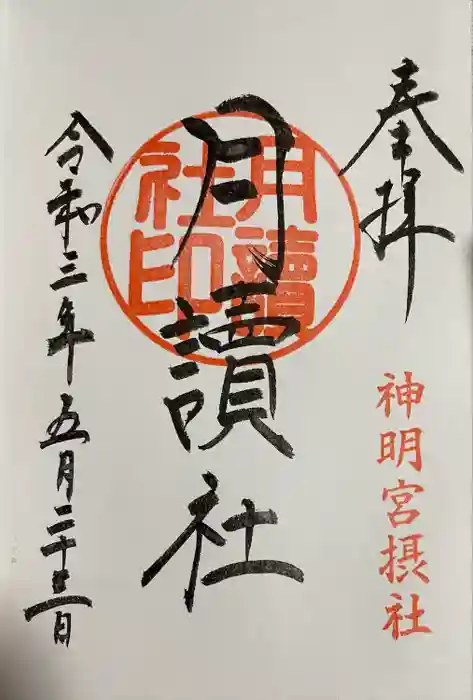 奉拝
神明宮摂社
月讀社
月讀社印
令和三年五月二十三日